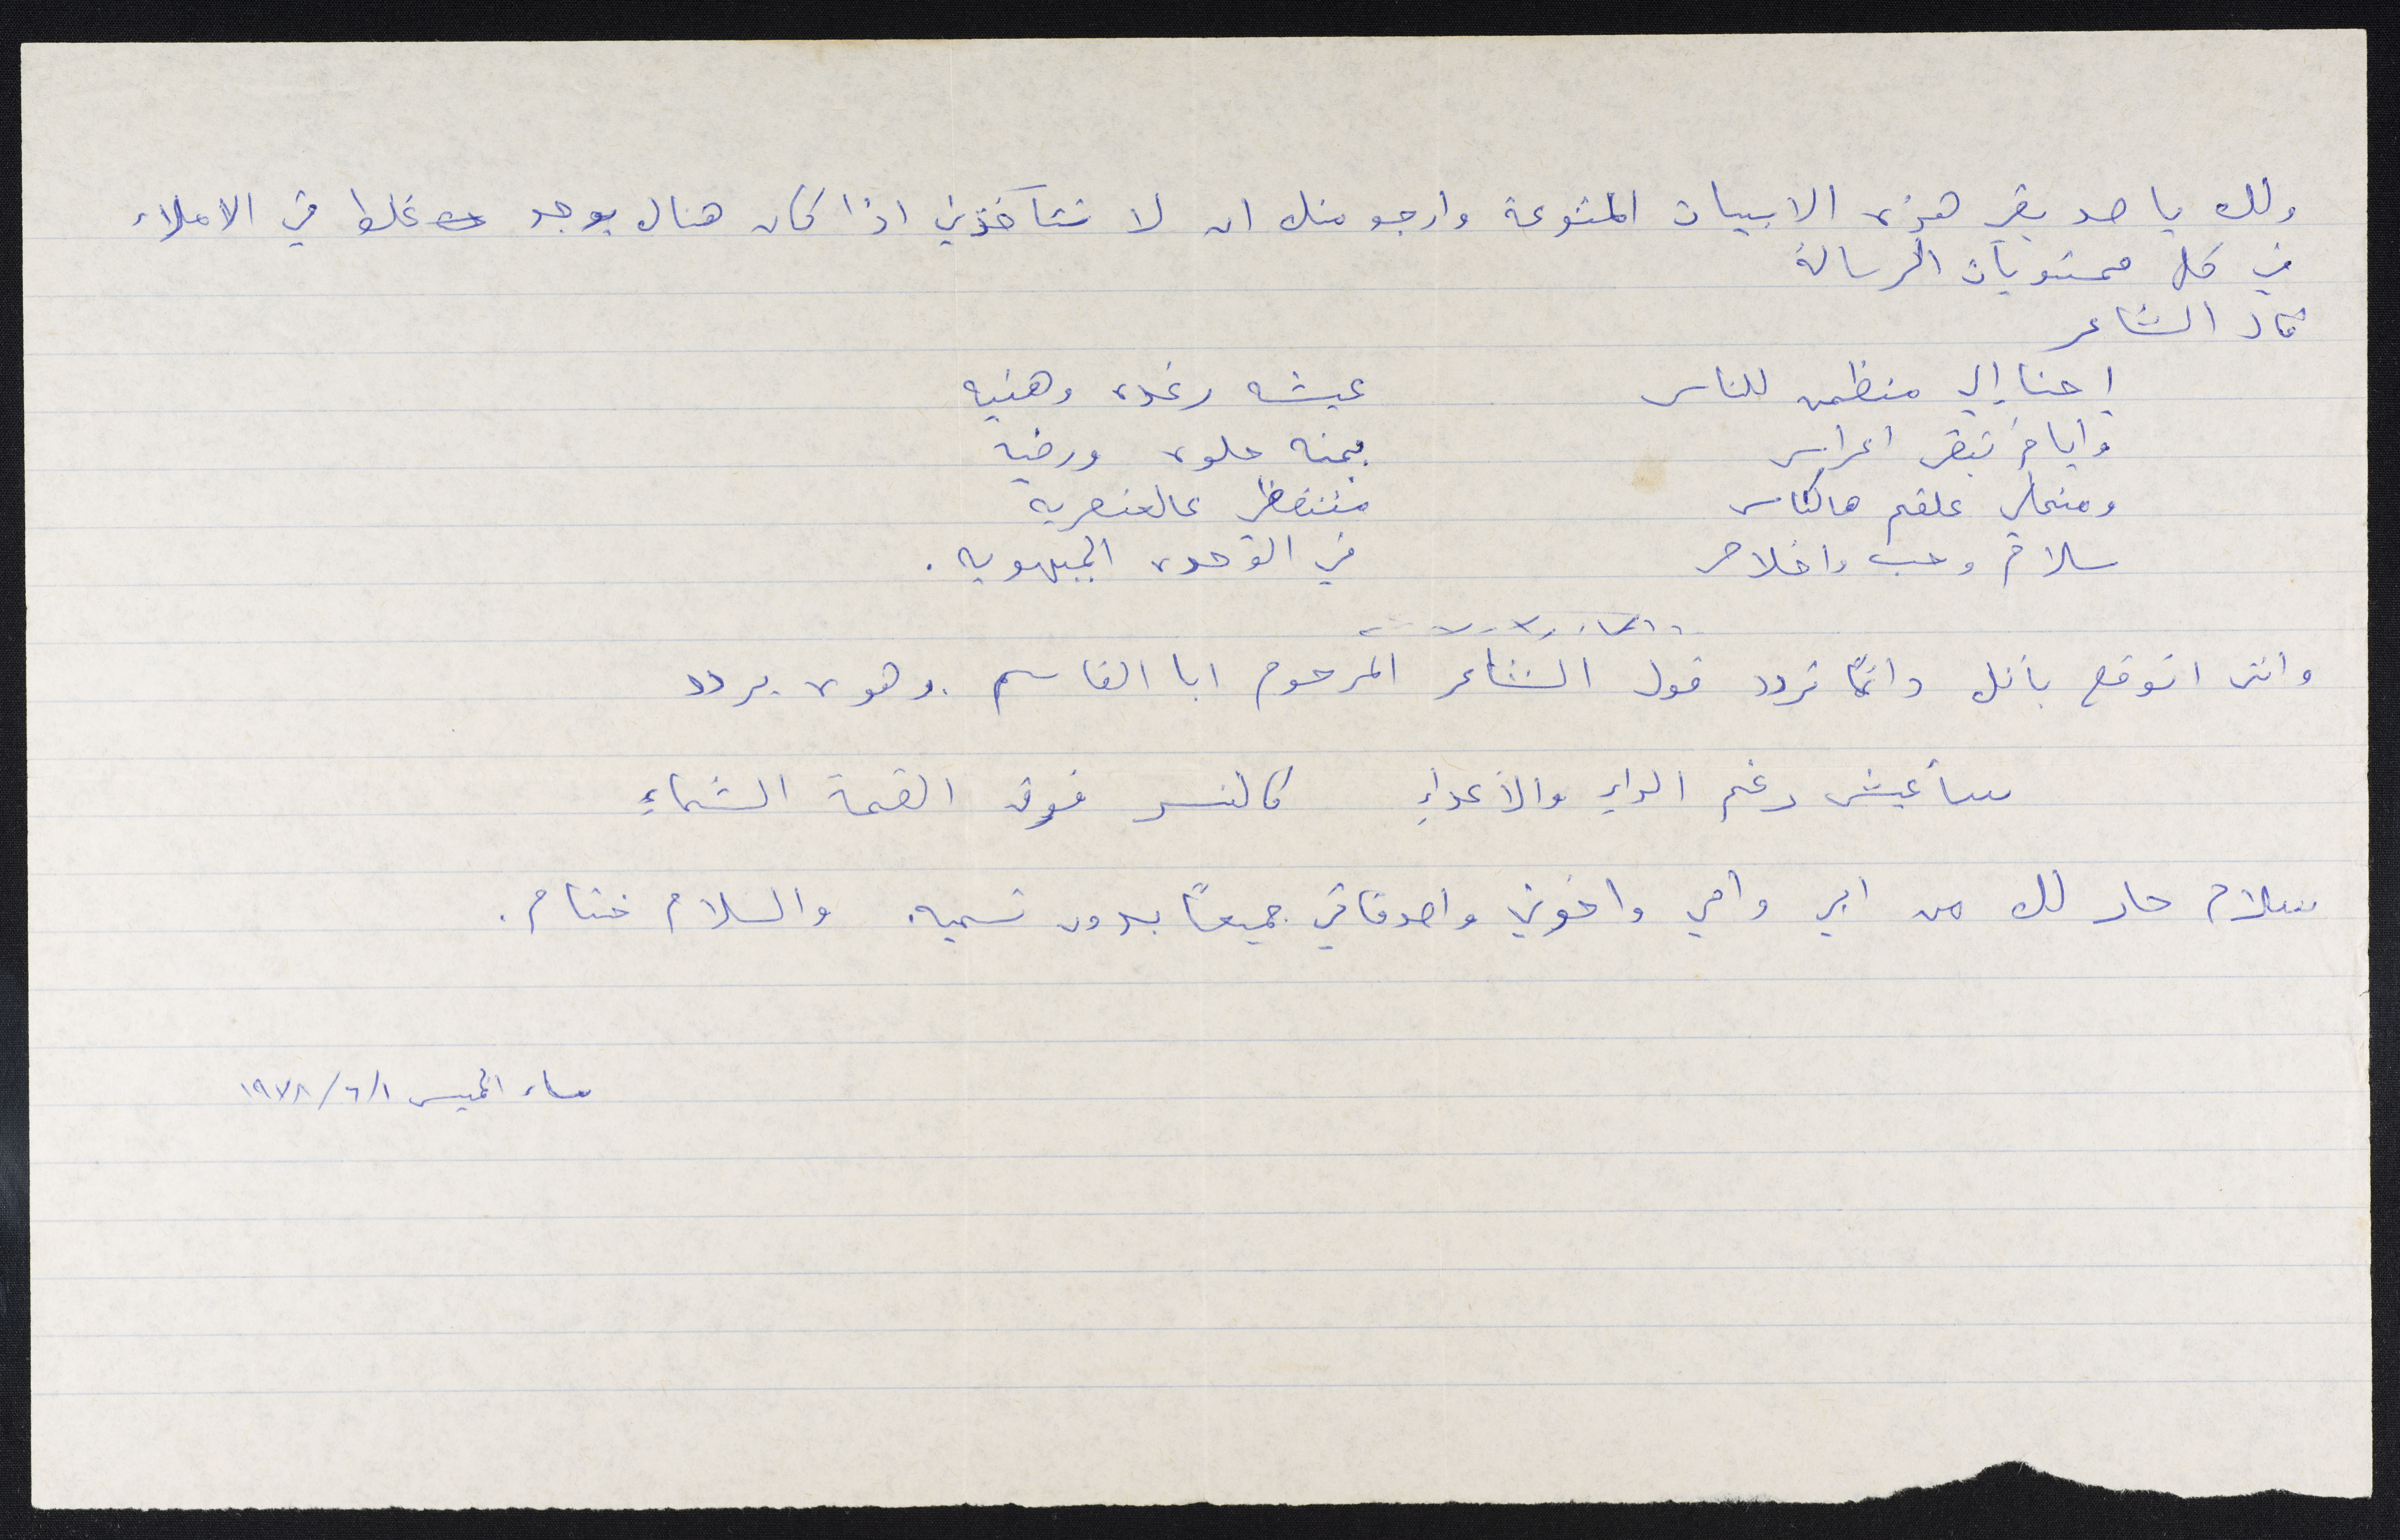 ولك يا صديقي هذه الابيات المتنوعة وارجو منك ان لا تتآخذني اذا كان هناك يوجد غلط في الاملاء
في كل محتويات الرسالة
قال الشاعر
احنا إلي منظمن للناس عيشه رغده وهنيه
وايامي تبقى اعراس بجنه حلوه ورضيه
ومنحلي علقم هالكاس منتنقضى عالعنصريه
سلام وحب واخلاص في الوحده الجبهويه .
وانني اتوقع بأنك دائمًا تردد قول الشاعر المرحوم ابا القاسم وهو يردد
سأعيش رغم الداء والأعداءِ كالنسر فوق القمة الشماءِ
سلام حار لك من ابي وامي واخوتي واصدقائي جميعًا بدون تسميه. والسلام ختام .
مساء الخميس ١٩٧٨/٦/١